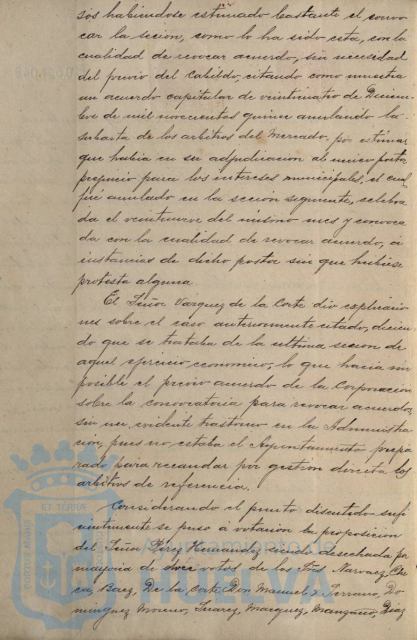 sos habiendose estimado bastante el convo
car la sesion, como lo ha sido esta, con la
cualidad de revocar acuerdo, sin necesidad
del previo del Cabildo, citando como muestra
un acuerdo capitular de veinticuatro de Diciem-
bre de mil novecientos quince anulando la
subasta de los arbitrios del Mercado, por estimar
que habia en su adjudicacion al unico postor
prejuicio para los intereses municipales, el cual
fué anulado en la sesion siguiente, celebra
da el veintinueve del mismo mes y convoca
da con la cualidad de revocar acuerdo, á
instancias de dicho postor sin que hubiese
protesta alguna
El Señor Vazquez de la Corte dió explicacio
nes sobre el caso anteriormente citado, dicien
do que se trataba de la ultima sesion de
aquel ejercicio economico, lo que hacia im
posible el previo acuerdo de la Corporacion
sobre la convocatoria para revocar acuerdo,
sin un evidente trastorno en la Administra
cion, pues no estaba el Ayuntamiento prepa
rado para recaudar por gestion directa los
arbitrios de referencia.
Considerando el punto discutido sufi
cientemente se puso á votacion la proposicion
del Señor Perez Hernandez siendo desechada por
mayoria de doce votos de los Sres Narvaez,
Baez, De la Corte, Don Manuel J. Serrano, Do
minguez Moreno, Suarez, Marquez, Diaz
ET TERRÆ
PORTUS MARIS
Ayuntamiento de
HUELVA